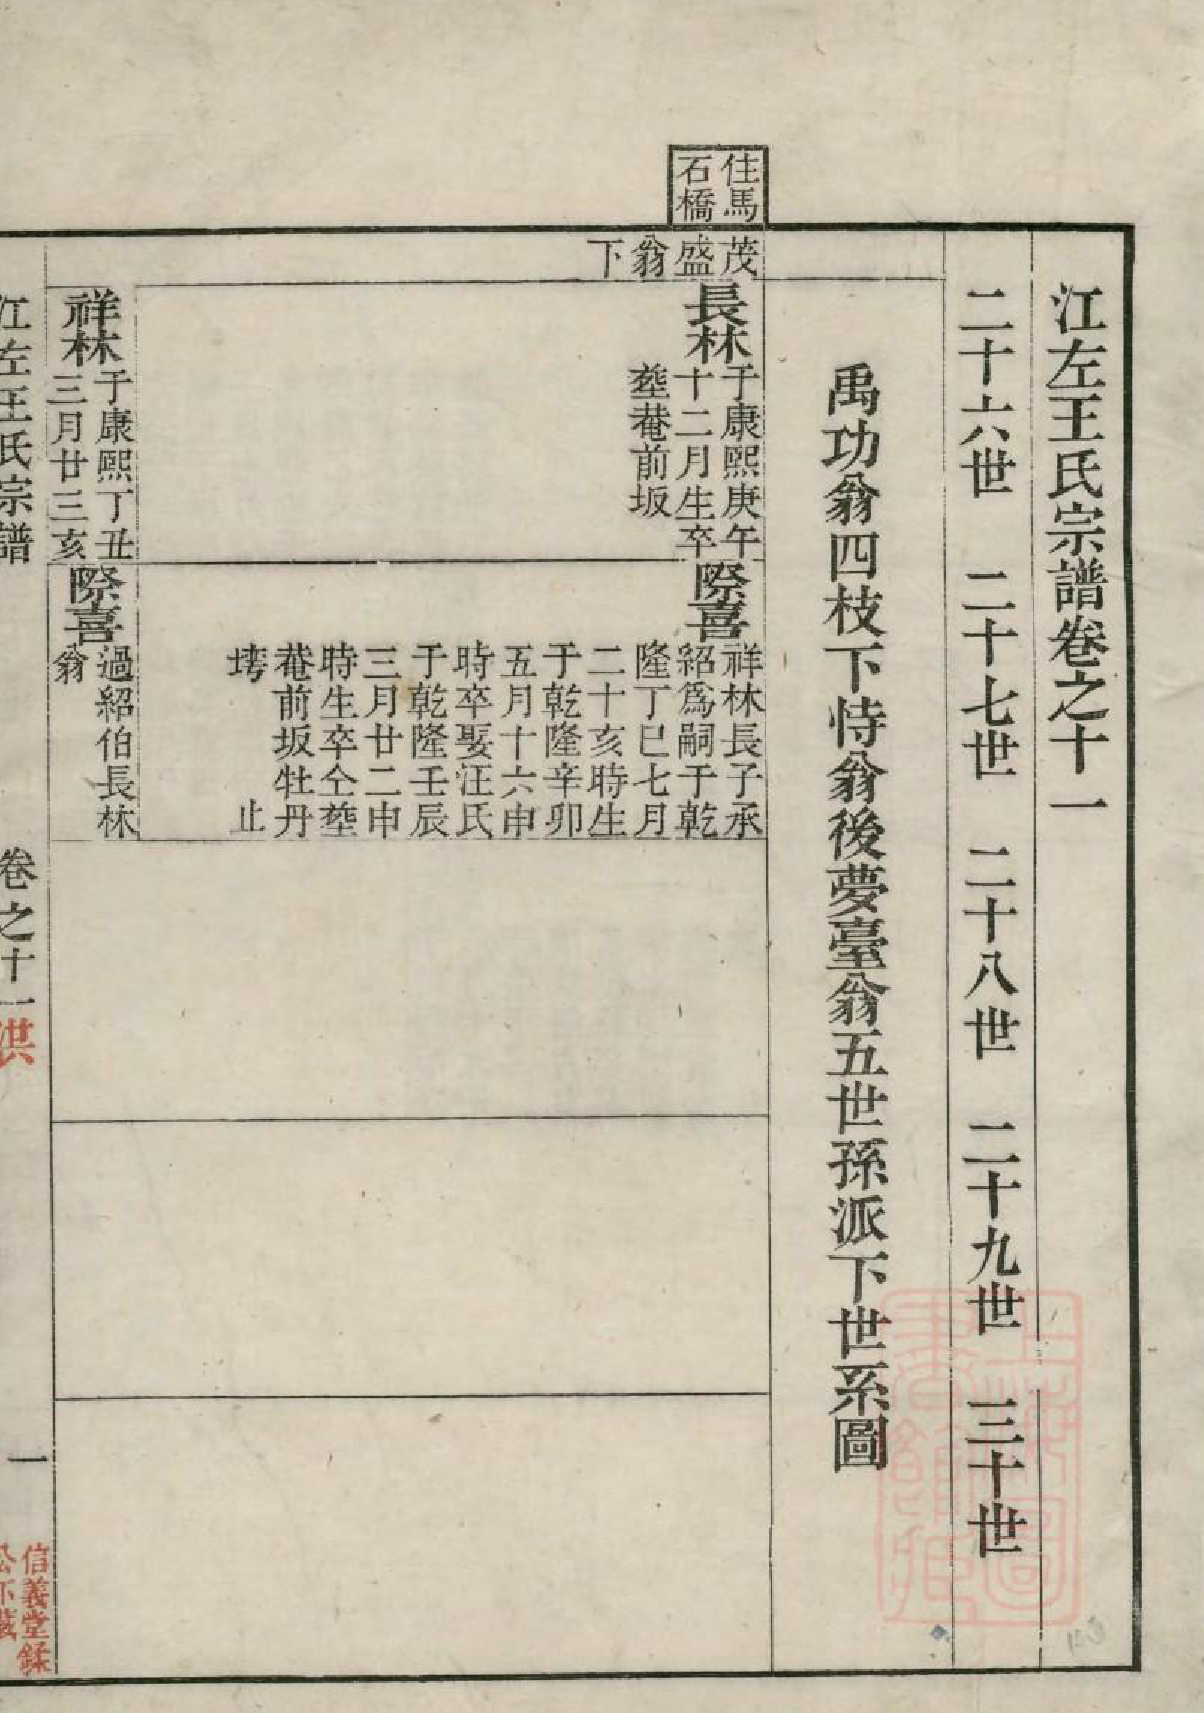 江左王氏宗譜卷之十一
二十六世 二十七世 二十八世 二十九世 三十世
禹功翁四枝下恃翁後夢臺翁五世孫派下世系圖
住馬
石橋
茂盛翁下
長林
于康熙庚午
十二月生卒
塟菴前坂
際喜
祥林長子承
紹爲嗣于乾
隆丁巳七月
二十亥時生
于乾隆辛卯
五月十六申
時卒娶汪氏
于乾隆壬辰
三月廿二申
時生卒仝塟
菴前坂牡丹
塆 止
祥林
于康熙丁丑
三月廿三亥
際喜
過紹伯長林
翁
江左王氏宗譜
卷之十一
洪
一
信義堂鍒
公不載